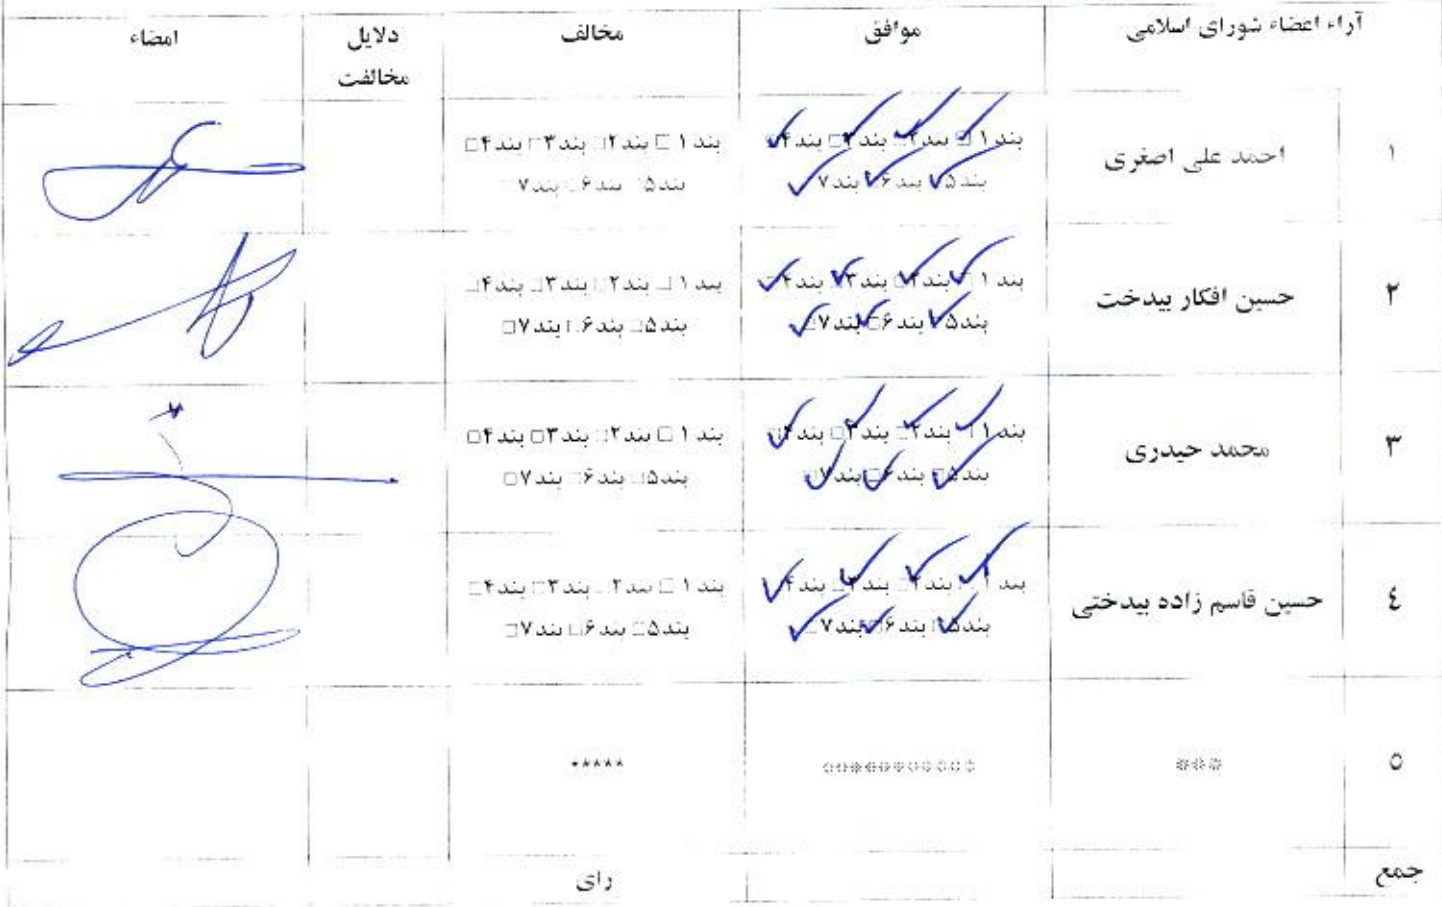 آراء اعضاء شورای اسلامی
موافق
مخالف
دلایل
مخالفت
امضاء
۱
احمد علی اصغری
بند ۱ □ بند۲□ بند۳□ بند۴□
بند۵□ بند۶□ بند۷□
بند ۱ □ بند۲□ بند۳□ بند۴□
بند۵□ بند۶□ بند۷□
۲
حسین افکار بیدخت
بند ۱ □ بند۲□ بند۳□ بند۴□
بند۵□ بند۶□ بند۷□
بند ۱ □ بند۲□ بند۳□ بند۴□
بند۵□ بند۶□ بند۷□
۳
محمد حیدری
بند ۱ □ بند۲□ بند۳□ بند۴□
بند۵□ بند۶□ بند۷□
بند ۱ □ بند۲□ بند۳□ بند۴□
بند۵□ بند۶□ بند۷□
٤
حسین قاسم زاده بیدختی
بند ۱ □ بند۲□ بند۳□ بند۴□
بند۵□ بند۶□ بند۷□
بند ۱ □ بند۲□ بند۳□ بند۴□
بند۵□ بند۶□ بند۷□
۵
***
***********
*****
جمع
رای